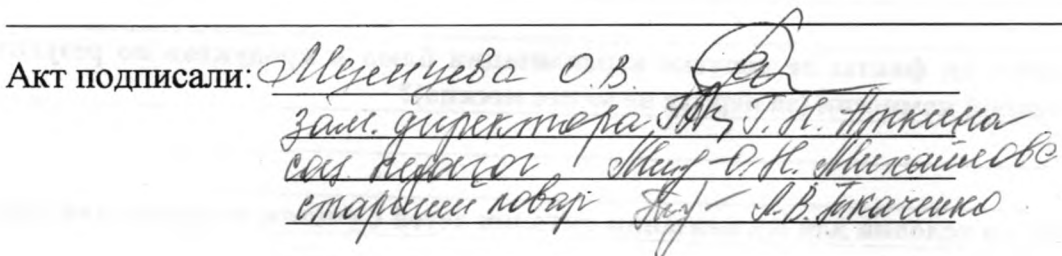 Акт подписали: Мезенцева О.В.
зам. директора Г.Н. Анкина
соц педагог О.Н. Михайлова
старший повар А.В. Ткаченко